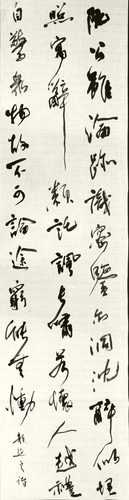 阮公雖淪跡識密鑒亦洞沈醉似埋
照寓辭類託諷長嘯若懷人越禮
自驚衆物故不可論途窮能無慟 顏延之詩